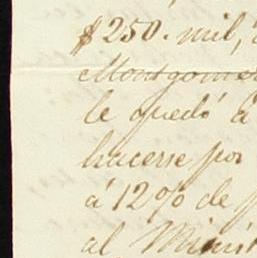 $250. mil,
Montgomer
le quedó à
hacerse por
à 12% de p
al Minist